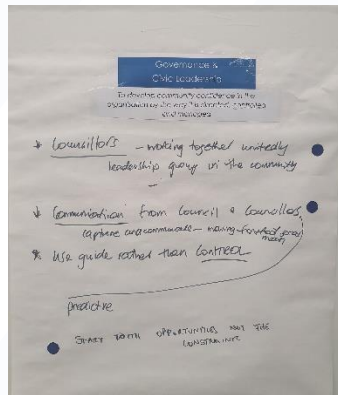 Governance &
Civic Leadership
To develop community confidence in the
organisation by the way it is directed, controlled
and managed
* Councillors - working together unitedly
leadership group in the community
-
* Communication from Council & Councillors
capture and communicate - moving forward
* Use guide rather than CONTROL
predictive
START WITH OPPORTUNITIES NOT THE
CONSTRAINTS